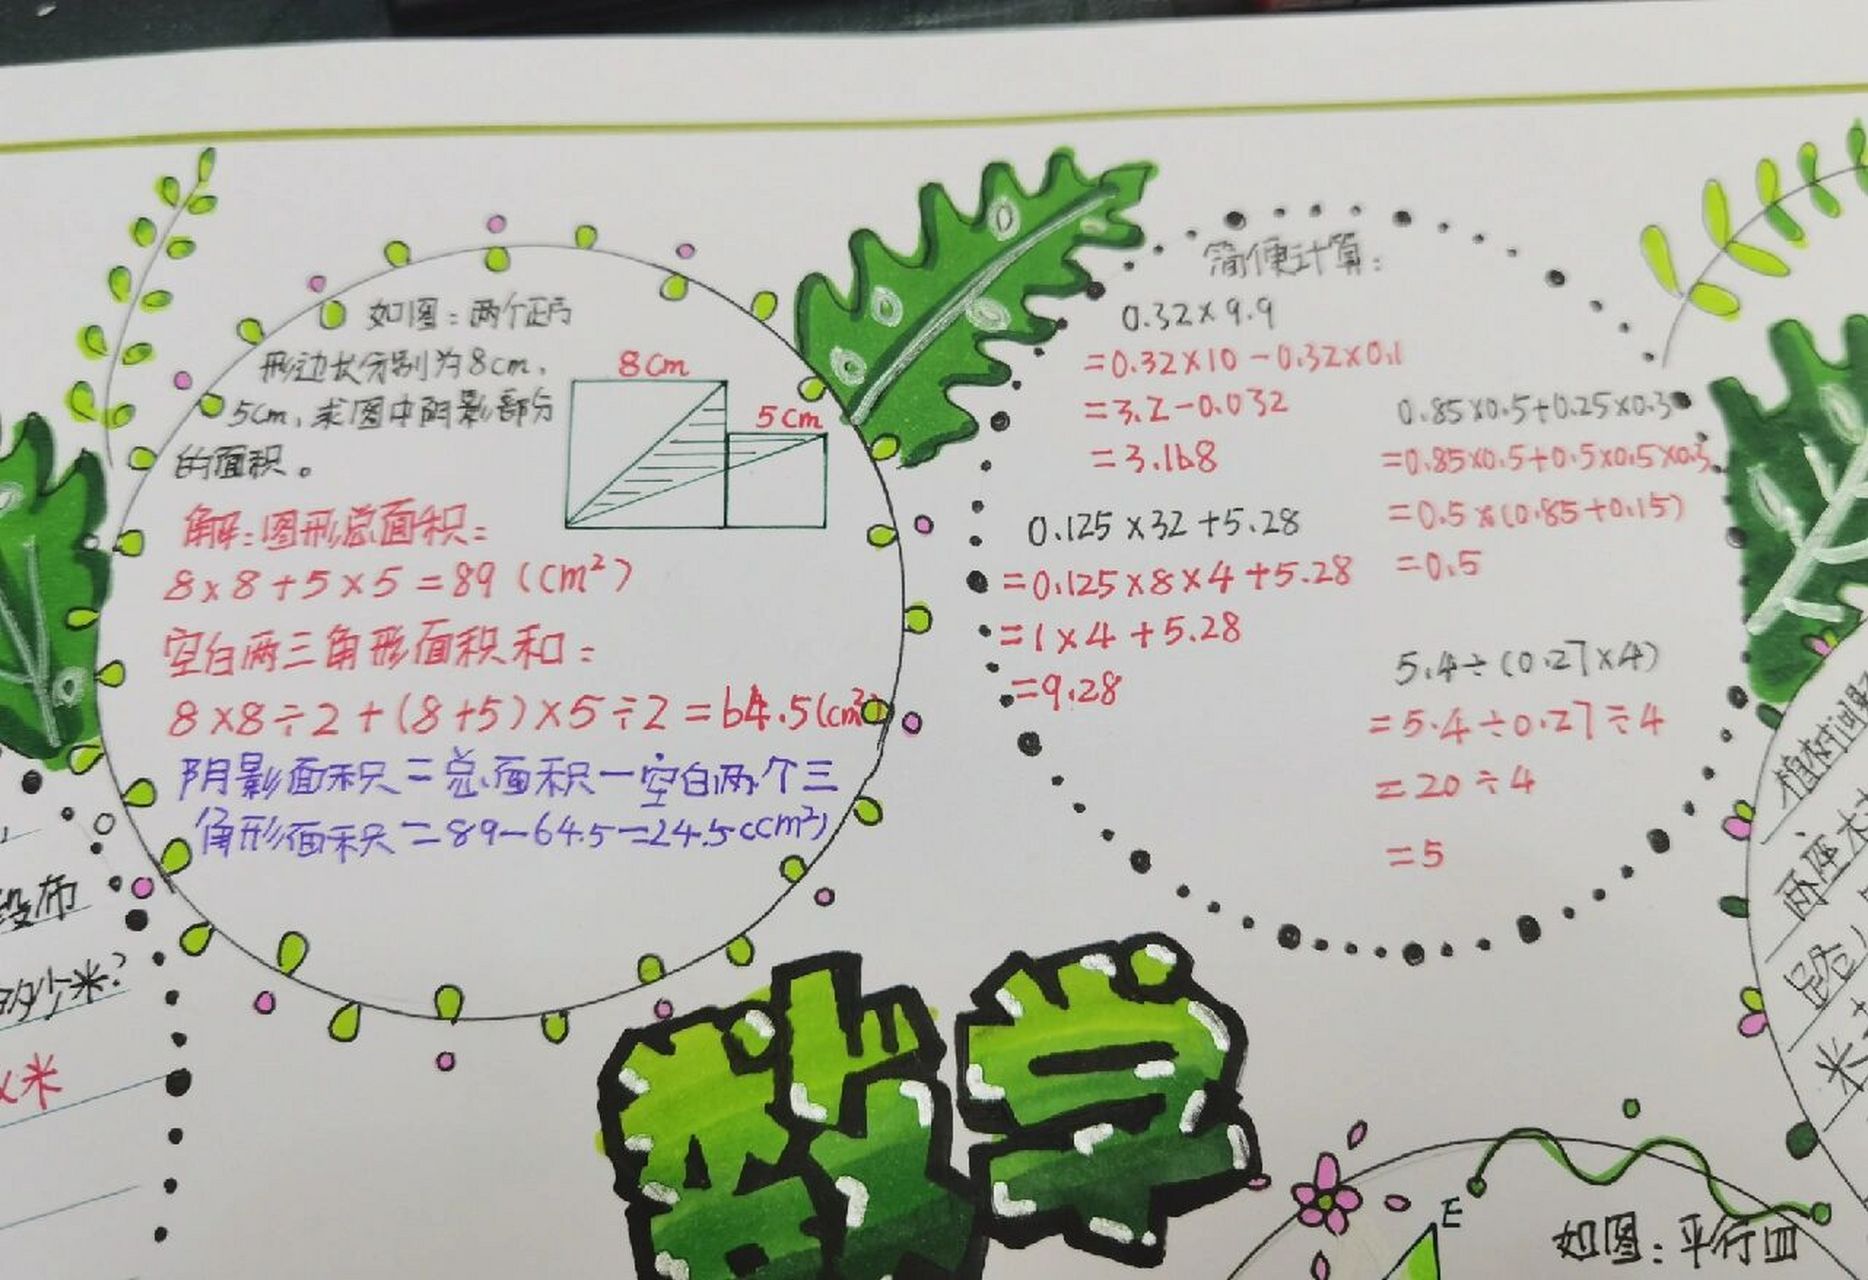 如图:两个正方
形边长分别为8cm,
5cm,求图中阴影部分
的面积。
8cm
5cm
解:图形总面积:
8×8+5×5=89(cm²)
空白两三角形面积和:
8×8÷2+(8+5)×5÷2=64.5(cm²)
阴影面积=总面积-空白两个三
角形面积=89-64.5=24.5(cm²)
简便计算:
0.32×9.9
=0.32×10-0.32×0.1
=3.2-0.032
=3.168
0.125×32+5.28
=0.125×8×4+5.28
=1×4+5.28
=9.28
0.85×0.5+0.25×0.3
=0.85×0.5+0.5×0.5×0.3
=0.5×(0.85+0.15)
=0.5
5.4÷(0.27×4)
=5.4÷0.27÷4
=20÷4
=5
段布
多少米?
米
数学
植树问题
两座
路
米
E
如图:平行四